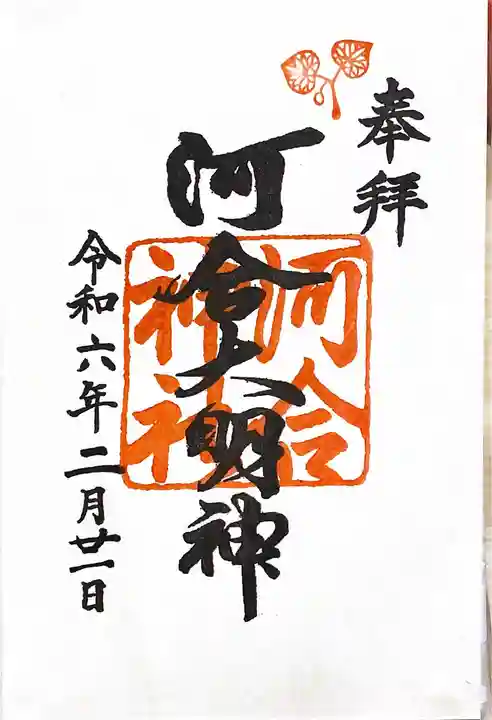 奉拝
河合大明神
河合
神社
令和六年二月廿一日